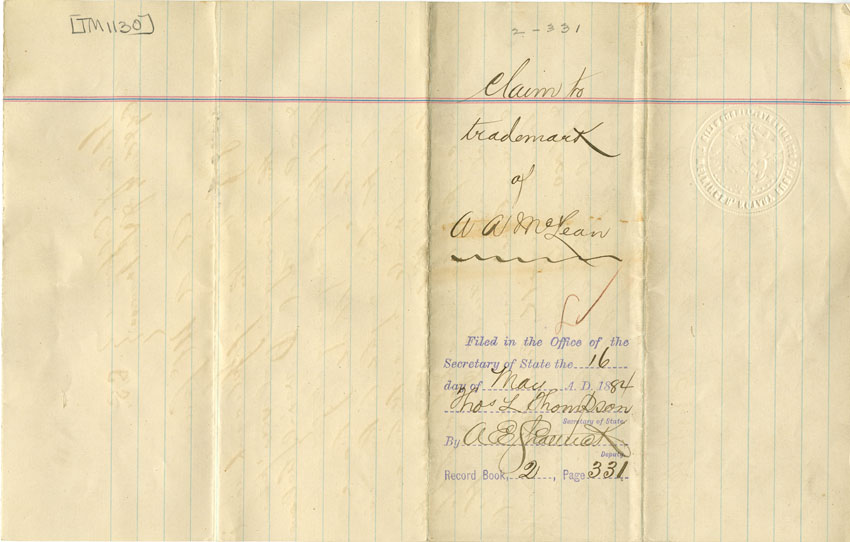 [TM1130]
2-331
Claim to
trademark
of
A A McLean
Filed in the Office of the
Secretary of State the 16
day of May A. D. 1884
Thos L Thompson
Secretary of State
By A E
Deputy
Record Book, 2, Page 331